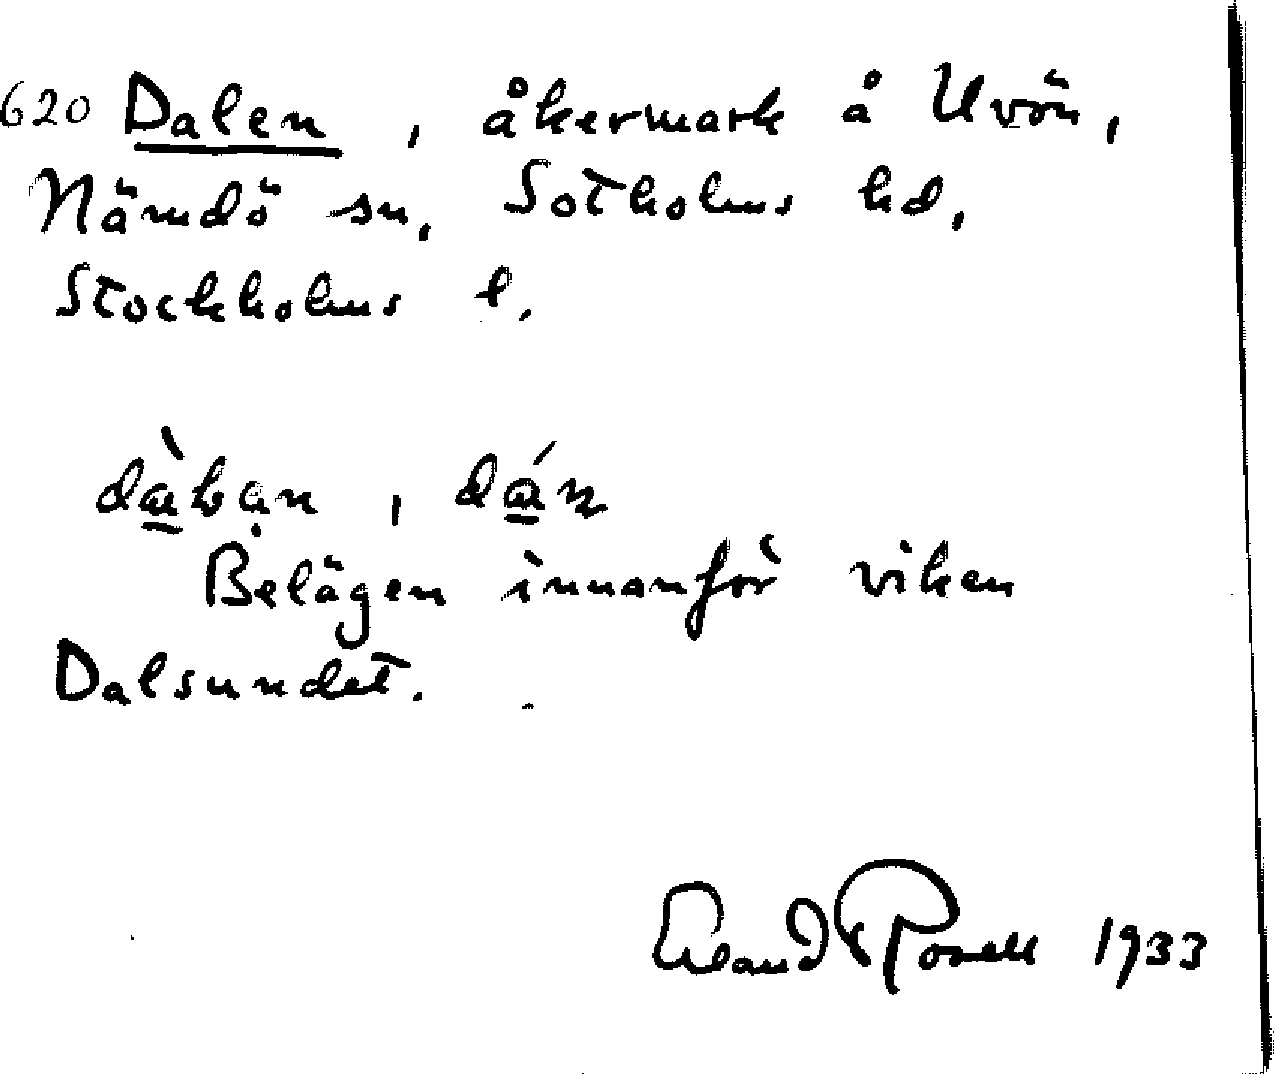 620 Dalen, åkermark å Uvön,
Nämdö sn, Sotholms hd,
Stockholms l.
Belägen innanför viken
Dalsundet.
Erland Rosell 1933